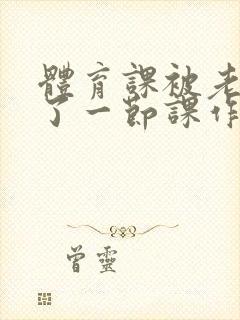 體育課被老
了一節課作
曾靈